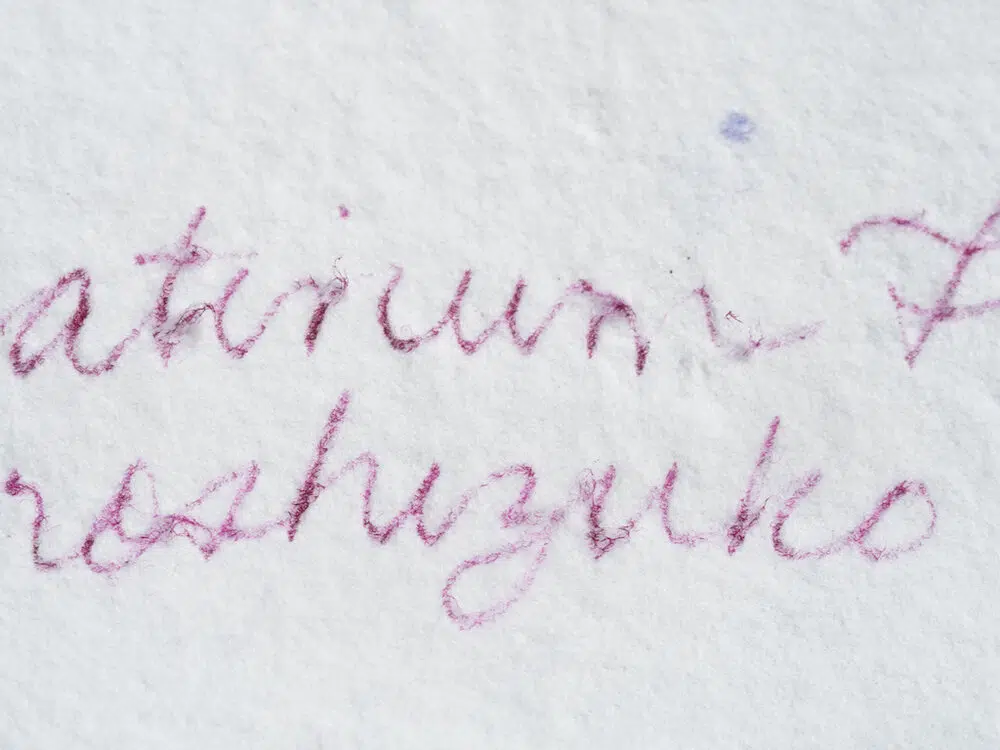 atinum
roshizuko